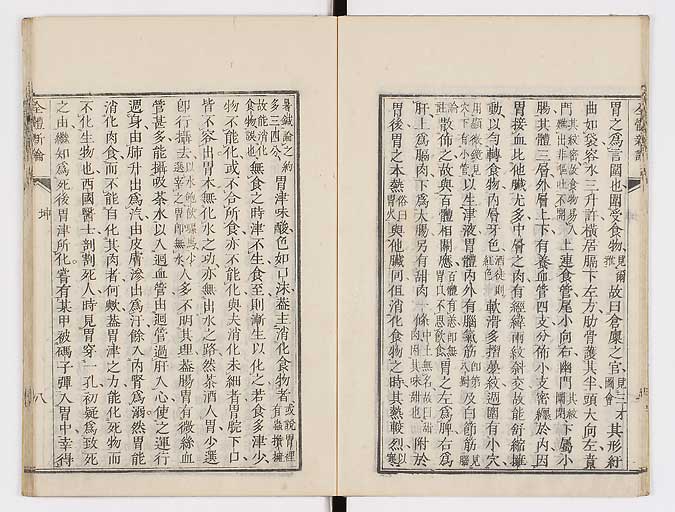 胃之為言圍也圍受食物見爾雅故曰倉廩之官見三才圖會其形紆
曲如袋容水三升許橫居膈下左方肋骨護其半頭大向左賁
門其紋密故食物易入難出非嘔吐不開上連食管尾小向右幽門其紋圍閉下屬小
腸其體三層外層上下有養血管四支分佈小支密纏於內因
胃接血比他臟尤多中層之肉有經緯兩紋斜交故能舒縮擁
動以勻轉食物內層牙色酒徒則紅色軟滑多摺疊紋週圍有小穴
用顯微鏡見穴下有小管以生津液胃體內外有腦氣筋及白節筋
散佈之故與百體相關應百體有恙即無胃口不思飲食胃之左為脾右為
肝上為膈肉下為大腸另有甜肉一條附於
胃後胃之本熱俗曰胃火與他臟同但消化食物之時其熱較烈以寒
暑鍼論之約多三四分胃津味酸色如口沫蓋主消化食物者或說胃裡有蟲攢擁
故能消化食物誤也無食之時津不生食至則漸生以化之若食多津少
物不能化或不合所食亦不能化與夫消化未細者胃脘下口
皆不容出胃本無化水之功亦無出水之路然茶酒入胃少選
即行攝去人多不明其理蓋腸胃有微絲血
管甚多能攝吸茶水以入迴血管由迴管過肝入心使之運行
週身由肺升出為汽由皮膚滲出為汗餘入內腎為溺然胃能
消化肉食而不能自化其肉者何歟蓋胃津之力能化死物而
不化生物也西國醫士剖割死人時見胃穿一孔初疑為致死
之由繼知為死後胃津所化嘗有某甲被碼子彈入胃中幸得
全體新論
坤
八